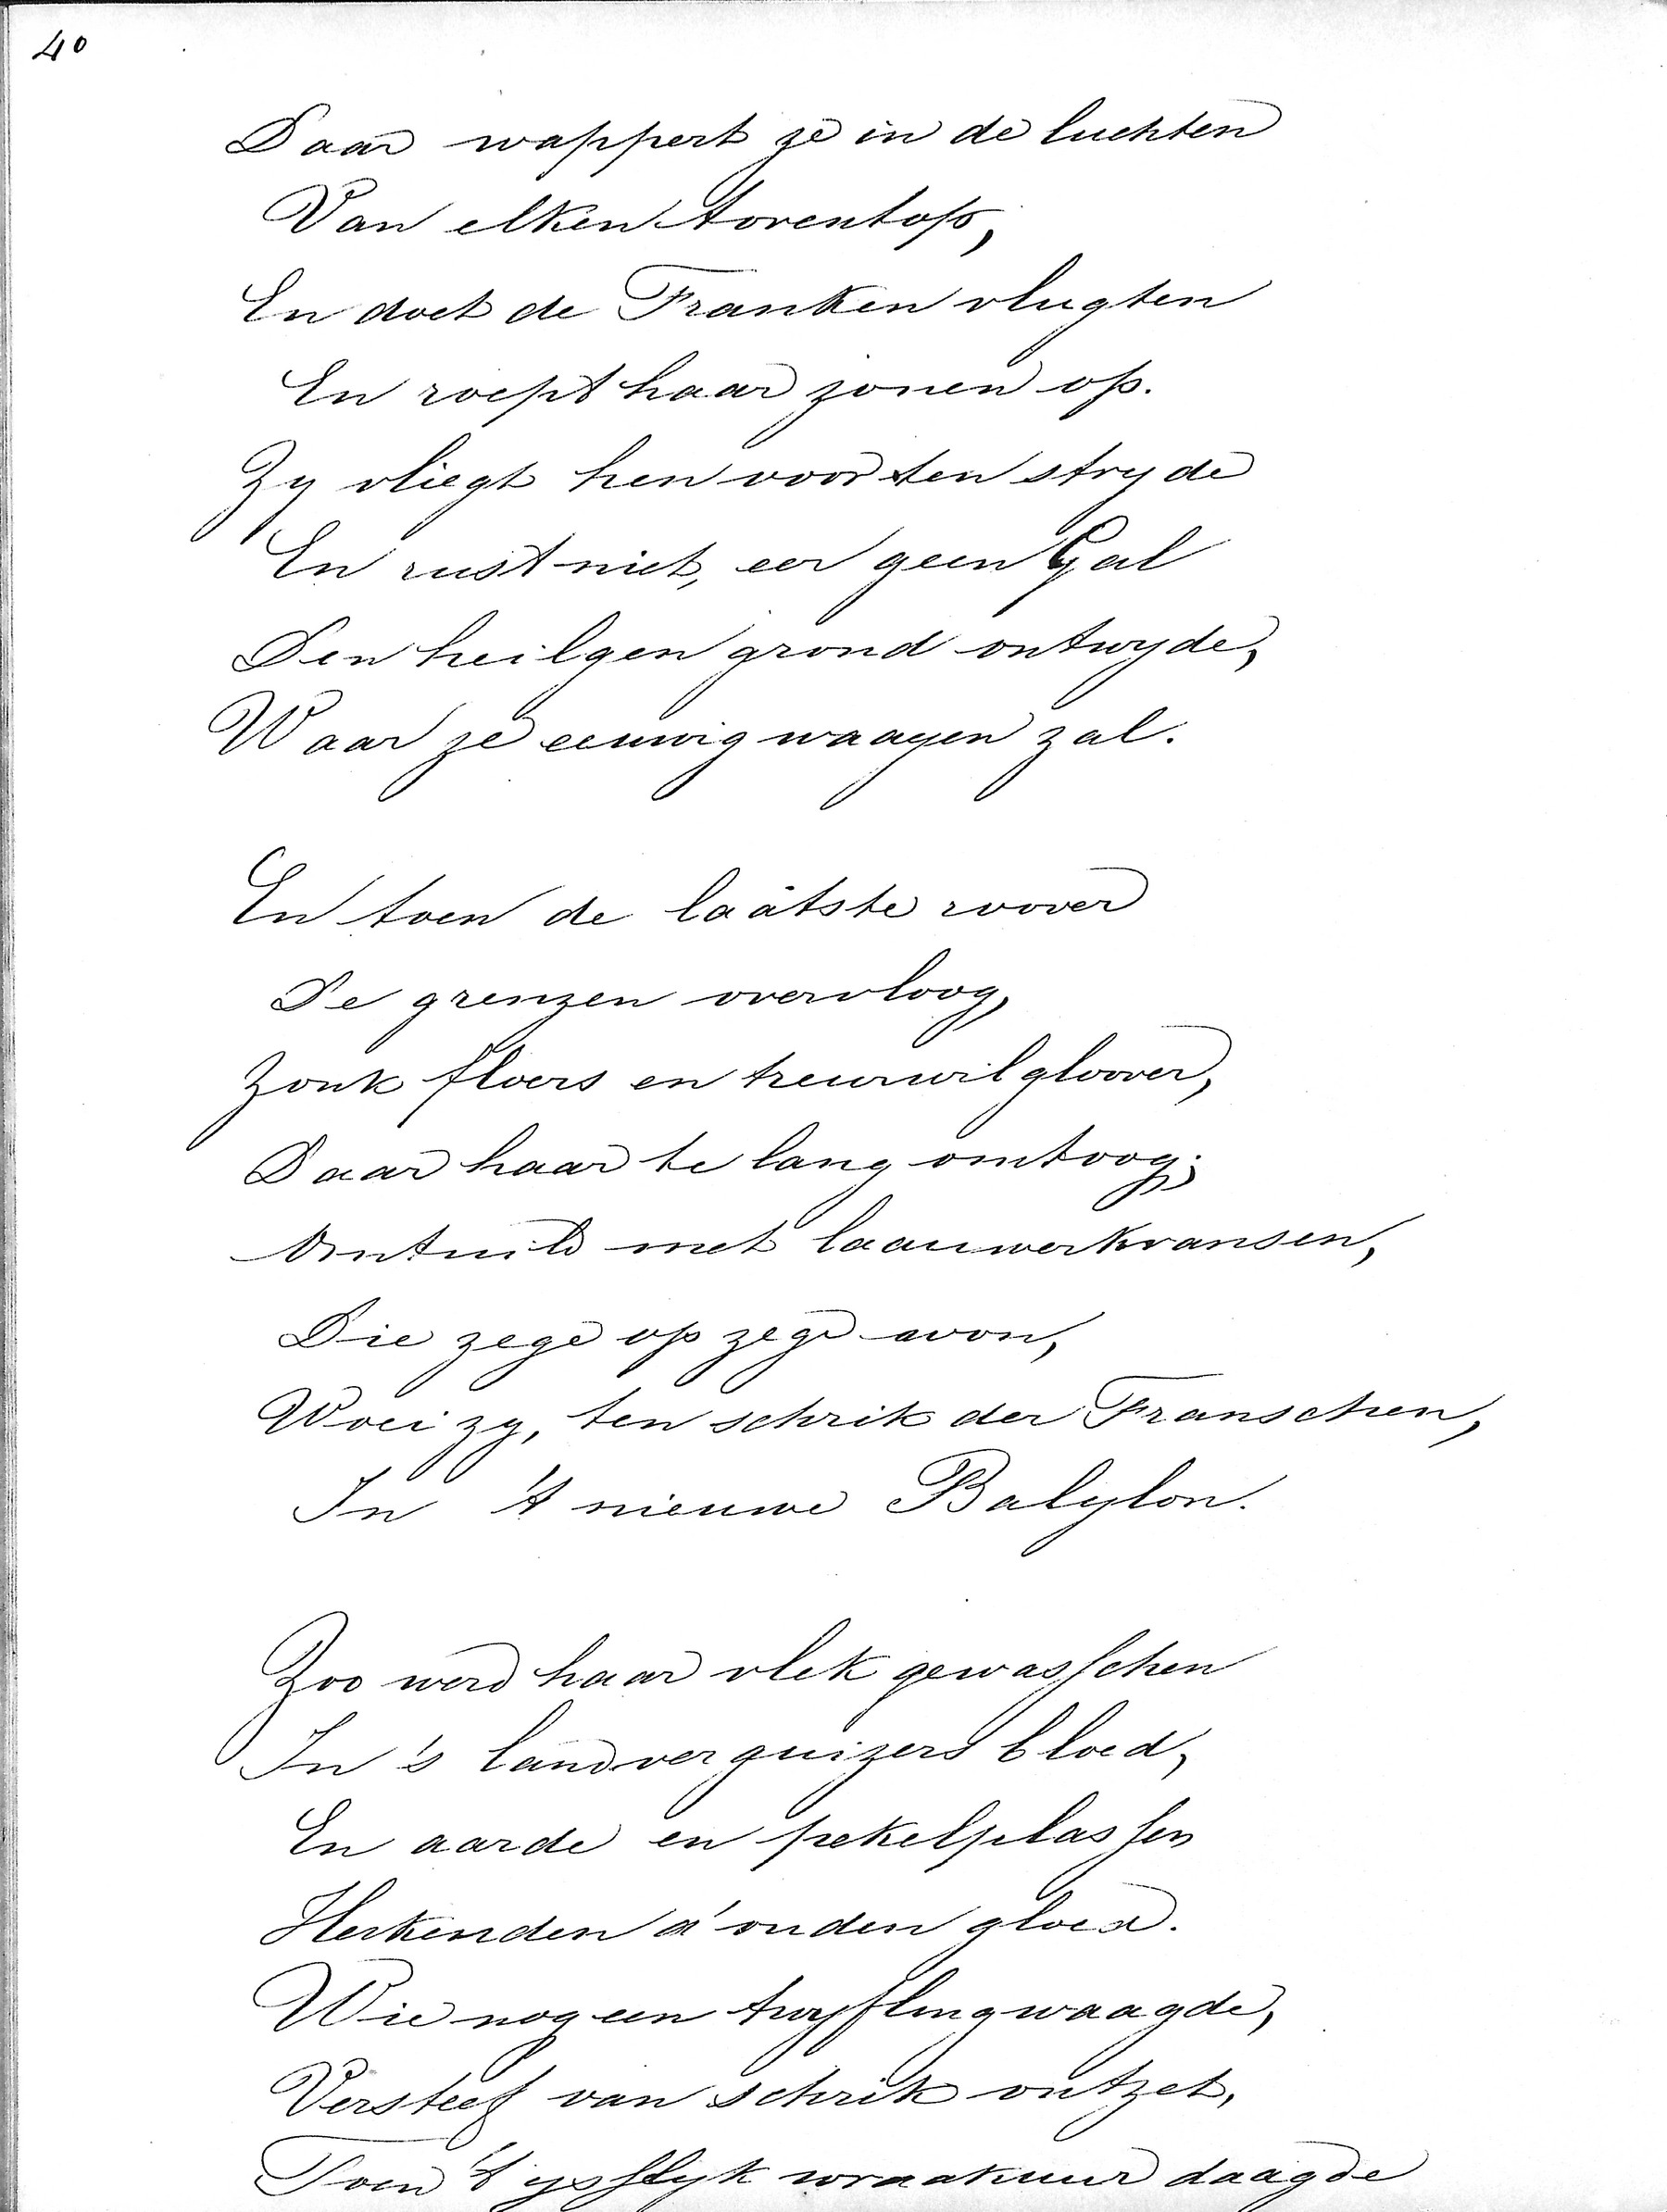 40
Daar wappert ze in de luchten
Van elken torentop,
En doet de Franken vlugten
En roept haar zonen op.
Zy vliegt hen voor ten stryde
En rust niet, eer geen Gal
Den heilgen grond ontwyde,
Waar ze eeuwig waayen zal.
En toen de laatste roover
De grenzen overvloog,
Zonk floers en treurwilgloover,
Daar haar te lang omtoog;
Omtuild met laauwerkransen,
Die zege op zege won,
Woei zy, ten schrik der Franschen,
In 't nieuwe Babylon.
Zoo werd haar vlek gewasschen
In 's landverguizers bloed,
En aarde en pekelplassen
Herkenden d' ouden gloed.
Wie nog een twyfling waagde,
Versteef van schrik ontzet,
Toen 't ysslyk wraakuur daagde